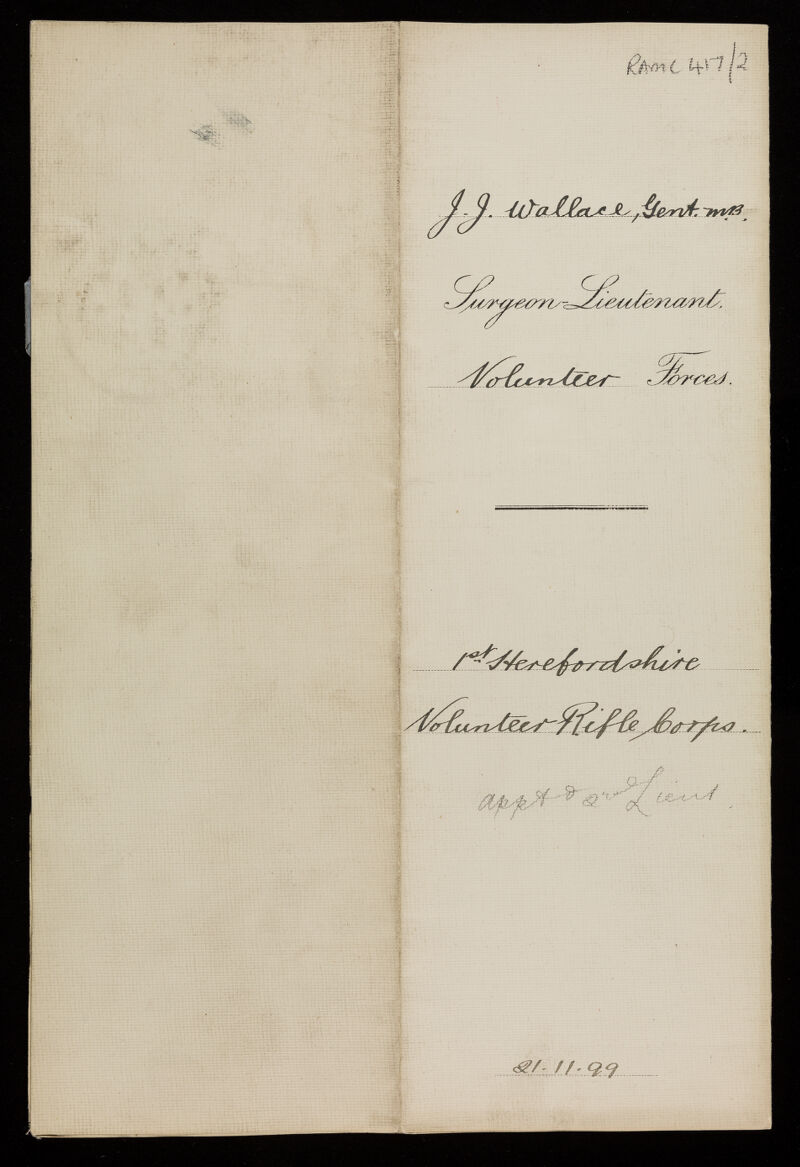 RAMC 417/2
J. J. Wallace, Gent. M.B.
Surgeon-Lieutenant.
Volunteer Forces.
1st Herefordshire
Volunteer Rifle Corps.
appt d 2nd Lieut.
21.11.99